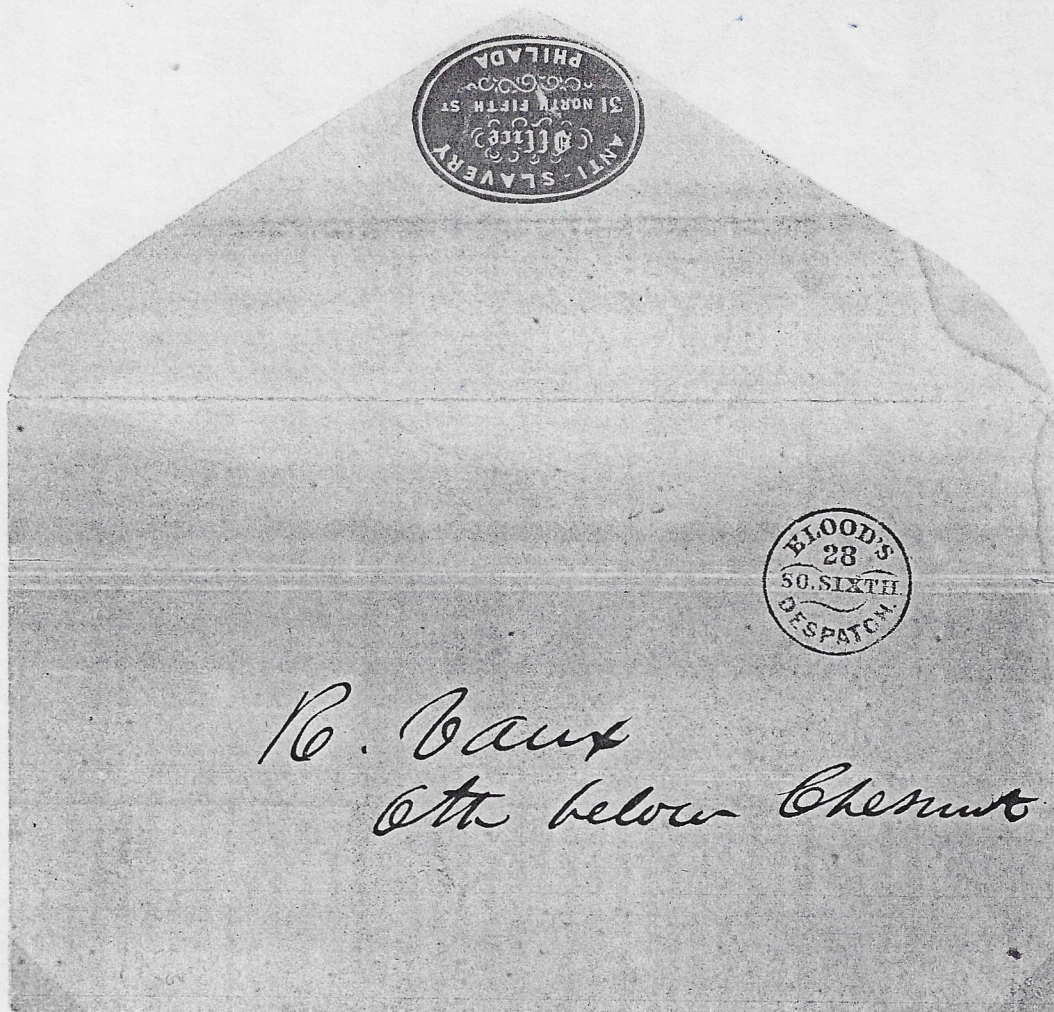 ANTI-SLAVERY
Office
31 NORTH FIFTH ST
PHILADA
BLOOD'S
28
SO. SIXTH
DESPATCH.
R. Vaux
6th below Chesnut